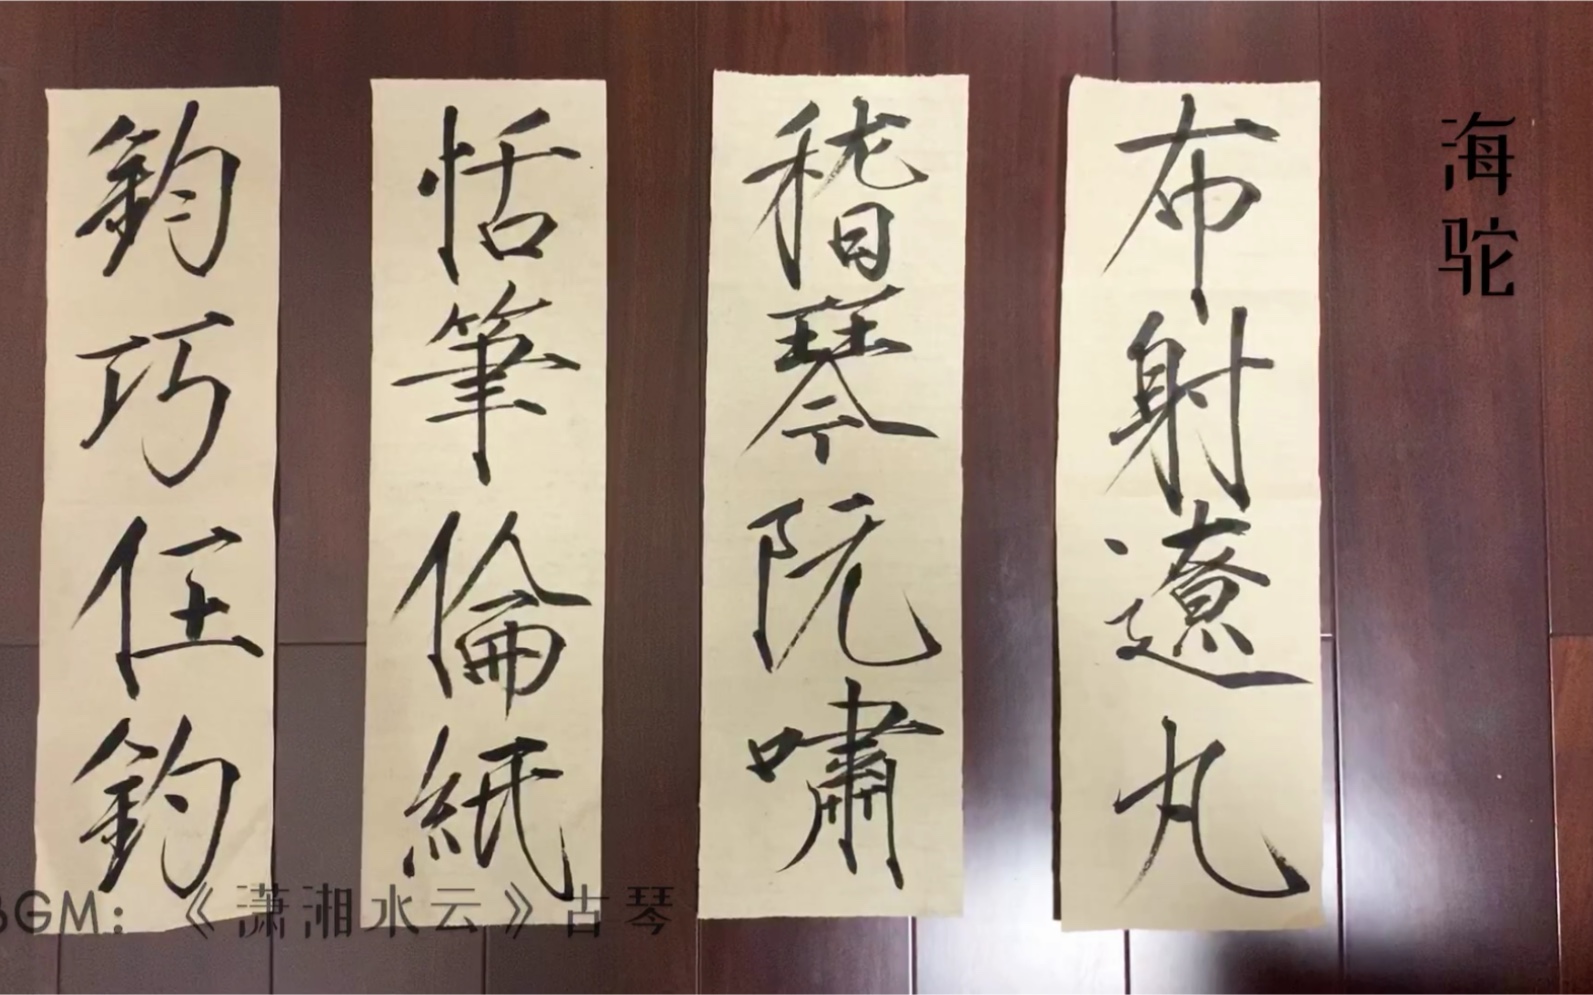 海驼
布射遼丸
稽琴阮嘯
恬筆倫紙
鈞巧任釣
BGM：《潇湘水云》古琴